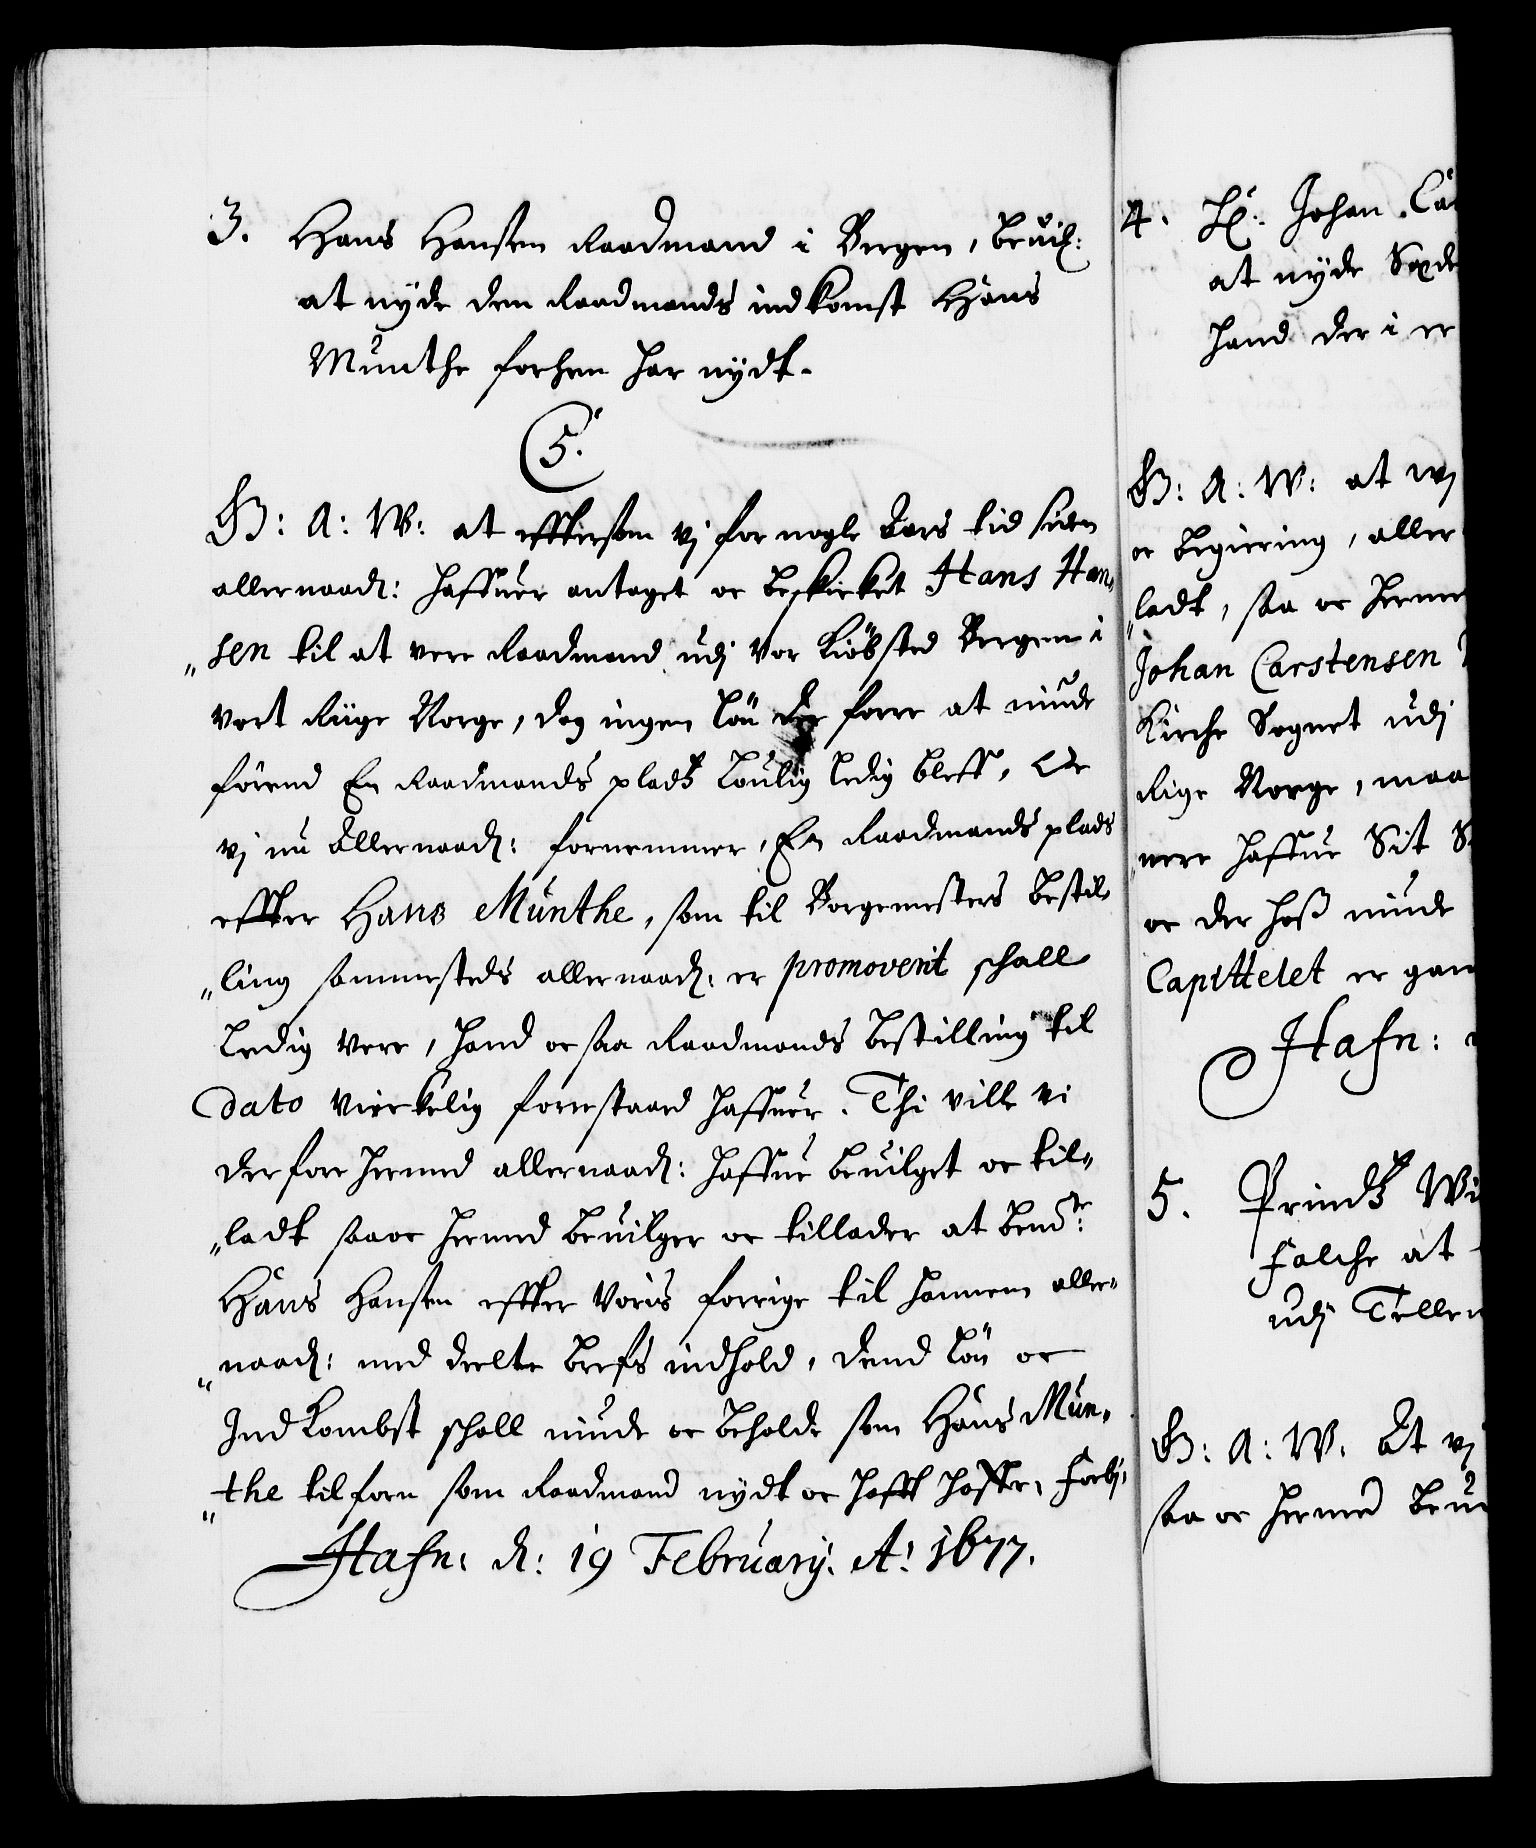 3. Hans Hansen Raadmand i Bergen, bevil:
at nyde den Raadmands indkomst Hans
Munthe forhen har nydt.
C 5.
G: A: W: at efftersom vj for nogle Aars tid siden
allernaad: haffuer antaget oc beskicket Hans Han„
„sen til at vere Raadmand udj vor Kiöbsted Bergen i
vort Riige Norge, dog ingen lön der forre at niude
förend En Raadmands plads loulig ledig bleff, Oc
vj nu Allernaad: fornemmer, En Raadmands plads
effter Hans Munthe, som til Borgemesters bestil
„ling sammesteds allernaad: er promoverit schall
Ledig vere, hand oc saa Raadmands bestilling til
dato virkelig forestaaed haffuer. Thi ville vi
derfore hermed allernaad: haffue beuilget oc til„
„ladt saa oc hermed beuilger oc tillader at bem.te:
Hans Hansen effter voris forrige til hannem aller„
„naad: meddeelte brefs indhold, dend lön oc
Indkombst schall niude oc beholde som Hans Mun„
„the tilforn som Raadmand nydt oc hafft haffer, Forbj:
Hafn: d: 19 February: A: 1677.
4. Hr: Johan Ca
at nyde Sæde
hand der i er
G: A: W: at wj
oc begiering, aller
„ladt, saa oc herme
Johan Carstensen
Kirche Sognet udj
Rige Norge, maa
„nere haffue Sit S
oc der hoß niude
Capittelet er gan
Hafn:
5. Prindtz Wi
Falche at
udj Tellem
G: A: W: At vj
saa oc hermed beui